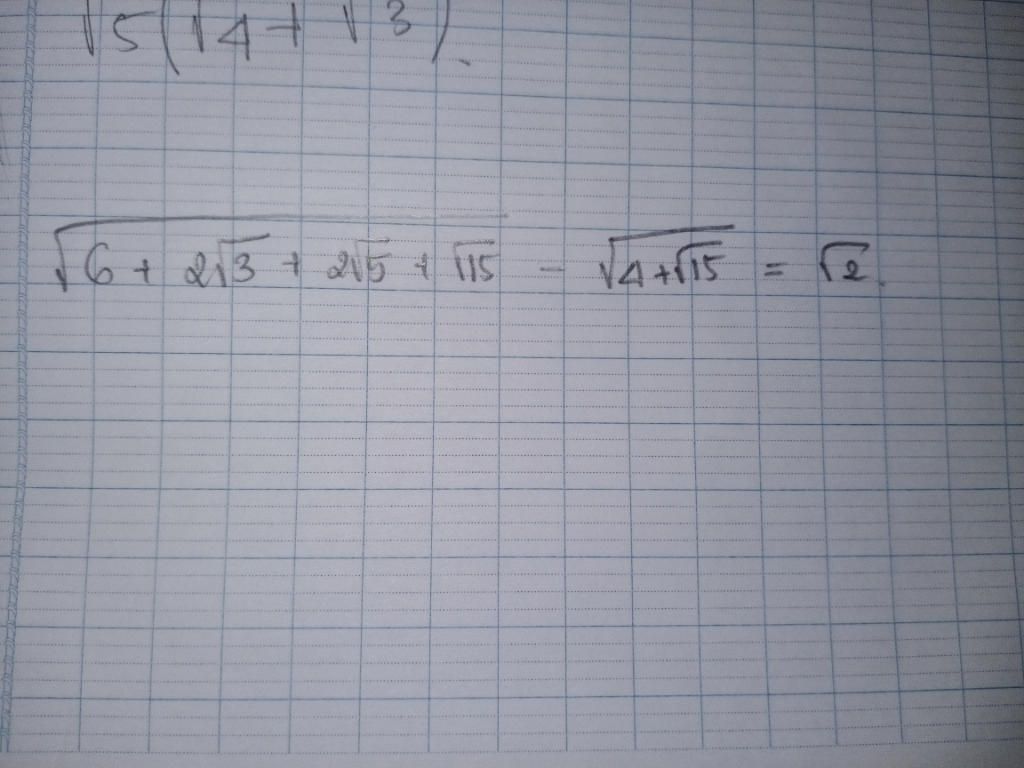 √5(√4 + √3).
√(6 + 2√3 + 2√5 + √15) - √(4+√15) = √2.